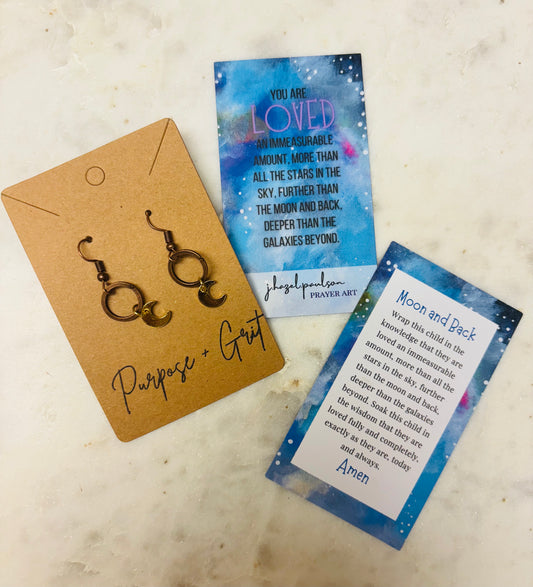 Purpose + Grit
YOU ARE
LOVED
AN IMMEASURABLE
AMOUNT, MORE THAN
ALL THE STARS IN THE
SKY, FURTHER THAN
THE MOON AND BACK,
DEEPER THAN THE
GALAXIES BEYOND.
j.hazel.paulson
PRAYER ART
Moon and Back
Wrap this child in the
knowledge that they are
loved an immeasurable
amount, more than all the
stars in the sky, further
than the moon and back,
deeper than the galaxies
beyond. Soak this child in
the wisdom that they are
loved fully and completely,
exactly as they are, today
and always.
Amen